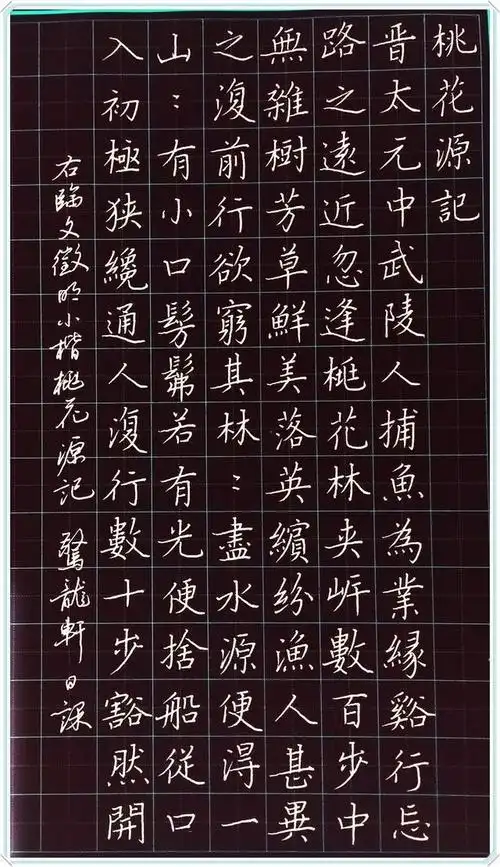 桃花源記
晉太元中武陵人捕魚為業緣谿行忘
路之遠近忽逢桃花林夾岸數百步中
無雜樹芳草鮮美落英繽紛漁人甚異
之復前行欲窮其林〻盡水源便得一
山〻有小口髣髴若有光便捨船從口
入初極狹纔通人復行數十步豁然開
右臨文徵明小楷桃花源記 驚龍軒日課